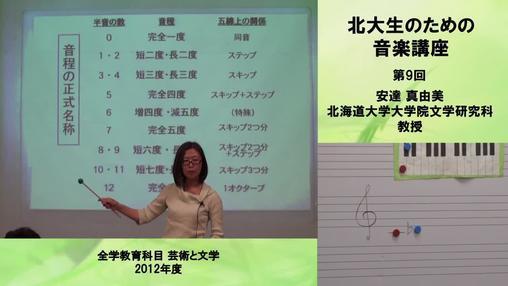 音程の正式名称
半音の数 音程 五線上の関係
0 完全一度 同音
1・2 短二度・長二度 ステップ
3・4 短三度・長三度 スキップ
5 完全四度 スキップ+ステップ
6 増四度・減五度 (特殊)
7 完全五度 スキップ2つ分
8・9 短六度・長 スキップ2つ分
+ステップ
10・11 短七度 スキップ3つ分
12 完全 1オクターブ
全学教育科目 芸術と文学
2012年度
北大生のための
音楽講座
第9回
安達 真由美
北海道大学大学院文学研究科
教授